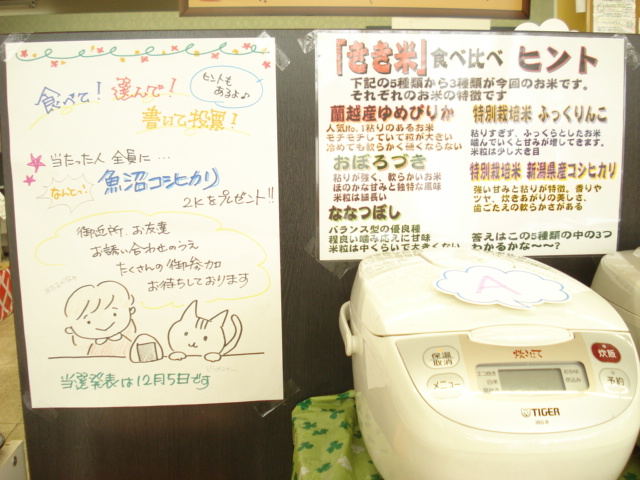 食べて！ 選んで！
書いて投票！
ヒントも
あるよ♪
当たった人 全員に…
なんとっ！ 魚沼コシヒカリ
2Kをプレゼント!!
御近所、お友達
お誘い合わせのうえ
たくさんの御参加
お待ちしております
当選発表は12月5日です
「きき米」食べ比べ ヒント
下記の5種類から3種類が今回のお米です。
それぞれのお米の特徴です
蘭越産ゆめぴりか
人気No.1粘りのあるお米
モチモチしていて粒が大きい
冷めても軟らかく硬くならない
おぼろづき
粘りが強く、軟らかいお米
ほのかな甘みと独特な風味
米粒は細長い
ななつぼし
バランス型の優良種
程良い噛み応えに甘味
米粒は中くらいで大きくない
特別栽培米 ふっくりんこ
粘りすぎず、ふっくらとしたお米
噛んでいくと甘みが増してきます。
米粒は少し大き目
特別栽培米 新潟県産コシヒカリ
強い甘みと粘りが特徴。香りや
ツヤ、炊きあがりの美しさ、
歯ごたえの軟らかさがある
答えはこの5種類の中の3つ
わかるかな〜〜？
A
保温
取消
炊きたて
炊飯
メニュー
予約
TIGER